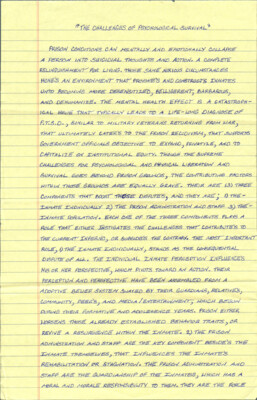 "THE CHALLENGES OF PSYCHOLOGICAL SURVIVAL"
PRISON CONDITIONS CAN MENTALLY AND EMOTIONALLY COLLAPSE
A PERSON INTO SUICIDAL THOUGHTS AND ACTION. A COMPLETE
FOR LIVING. THESE SAME VICIOUS CIRCUMSTANCES
AN ENVIRONMENT THAT PROMOTES AND INMATES
INTO BECOMING MORE DESENSITIZED, BELLIGERENT, BARBAROUS,
AND DEHUMANIZE. THE MENTAL HEALTH EFFECT IS A CATASTROPH-
ICAL ISSUE THAT TYPICALLY LEADS TO A LIFE-LONG DIAGNOSIS OF
P.T.S.D., SIMILAR TO MILITARY VETERANS RETURNING FROM WAR,
THAT ULTIMATELY CATER'S TO THE PRISON RECIDIVISM, THAT
GOVERNMENT OFFICIALS OBJECTIVE TO EXPAND, AND TO
CAPITALIZE OF INSTITUTIONAL EQUITY. THOUGH THE SUPREME
CHALLENGES FOR PSYCHOLOGICAL AND PHYSICAL LIBERATION AND
SURVIVAL GOES BEYOND PRISON GROUNDS, THE CONTRIBUTING FACTORS
WITHIN THOSE GROUNDS ARE EQUALLY GRAVE. THERE ARE (3) THREE
COMPONENTS THAT AND THEY ARE; 1) THE
INMATE INDIVIDUALLY 2) THE PRISON ADMINISTRATION AND STAFF 3) THE
INMATE POPULATION. EACH ONE OF THE THREE CONTRIBUTORS PLAY A
ROLE THAT EITHER MITIGATES THE CHALLENGES THAT CONTRIBUTES TO
THE CURRENT EXPOSED, OR THE MOST IMPORTANT
ROLE, 1) THE INMATE INDIVIDUAL, STANDS AS THE
OF ALL. THE INDIVIDUAL INMATE PERCEPTION INFLUENCES
HIS OR HER PERSPECTIVE, WHICH PIVOTS TOWARD AN ACTION. THEIR
PERCEPTION AND PERSPECTIVE HAVE BEEN ASSEMBLED FROM A
ADOPTIVE BELIEF SYSTEM BY THEIR GUARDIANS, RELATIVES,
COMMUNITY, PEER'S, AND MEDIA/ENTERTAINMENT, WHICH BEGUN
DURING THEIR FORMATIVE AND ADOLESCENCE YEARS. PRISON EITHER
WORSENS THOSE ALREADY ESTABLISHED BEHAVIOR TRAITS, OR
REVIVE A RESURGENCE WITHIN THE INMATE. 2) THE PRISON
ADMINISTRATION AND STAFF ARE THE KEY COMPONENT BESIDES THE
INMATE THEMSELVES, THAT INFLUENCES THE INMATES
REHABILITATION OR STAGNATION. THE PRISON ADMINISTRATION AND
STAFF ARE THE GUARDIANSHIP OF THE INMATES, WHICH HAS A
MORAL AND MORALE RESPONSIBILITY TO THEM. THEY ARE THE ROLE